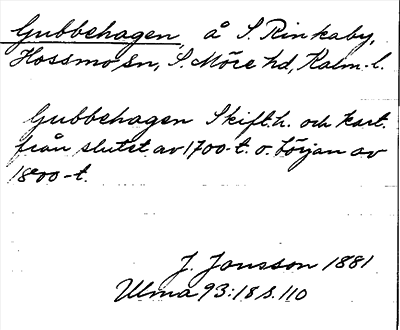 Gubbehagen, å S. Rinkaby,
Hossmo sn, S. Möre hd, Kalm. l.
Gubbehagen Skift.h. och kart.
från slutet av 1700-t. o. början av
1800-t.
J. Jonsson 1881
Ulma 93:18 s. 110